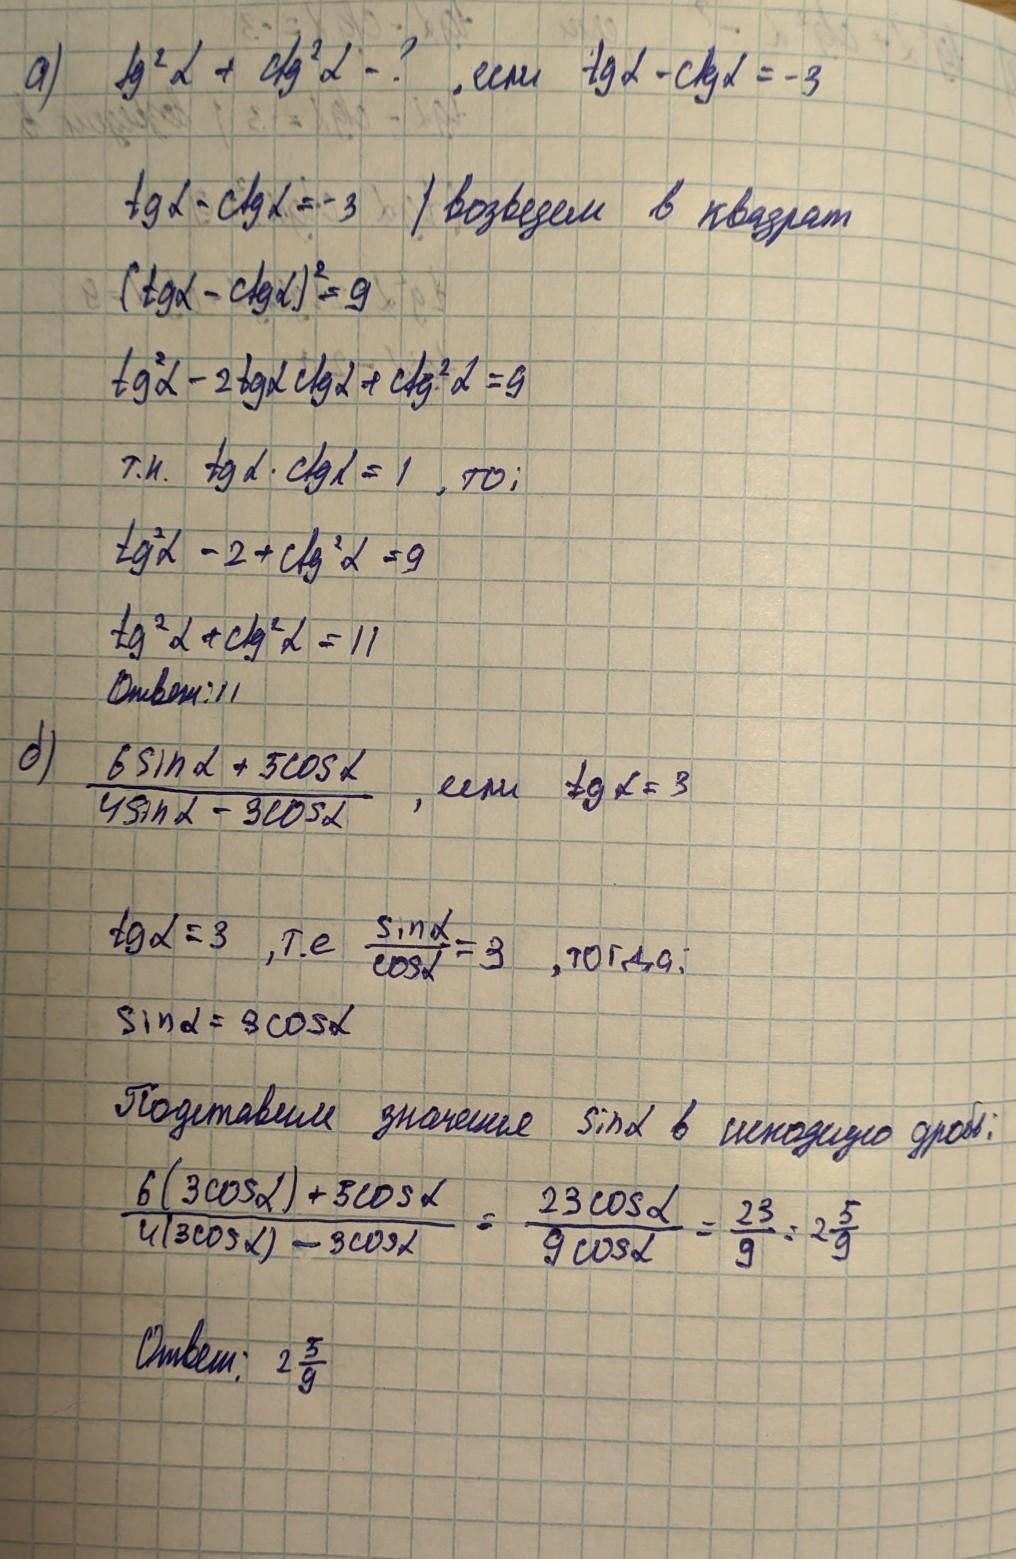 а) tg²α + ctg²α - ? , если tgα - ctgα = -3
tgα - ctgα = -3 | возведем в квадрат
(tgα - ctgα)² = 9
tg²α - 2tgα ctgα + ctg²α = 9
т.к. tgα · ctgα = 1 , то:
tg²α - 2 + ctg²α = 9
tg²α + ctg²α = 11
Ответ: 11
б) (6sinα + 5cosα)/(4sinα - 3cosα) , если tgα = 3
tgα = 3 , т.е sinα/cosα = 3 , тогда:
sinα = 3cosα
Подставим значение sinα в исходную дробь:
(6(3cosα) + 5cosα)/(4(3cosα) - 3cosα) = 23cosα/9cosα = 23/9 = 2 5/9
Ответ: 2 5/9